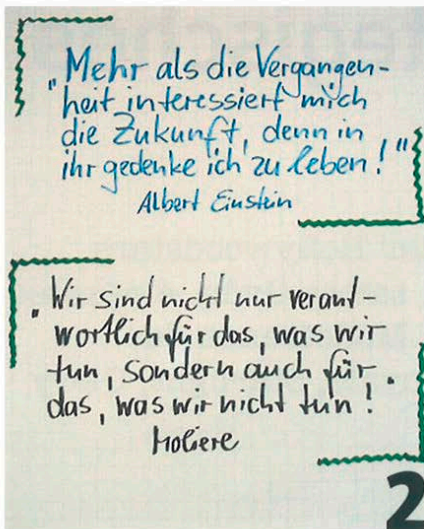 „Mehr als die Vergangen-
heit interessiert mich
die Zukunft, denn in
ihr gedenke ich zu leben!"
Albert Einstein
„Wir sind nicht nur verant-
wortlich für das, was wir
tun, sondern auch für
das, was wir nicht tun!"
Moliere
2